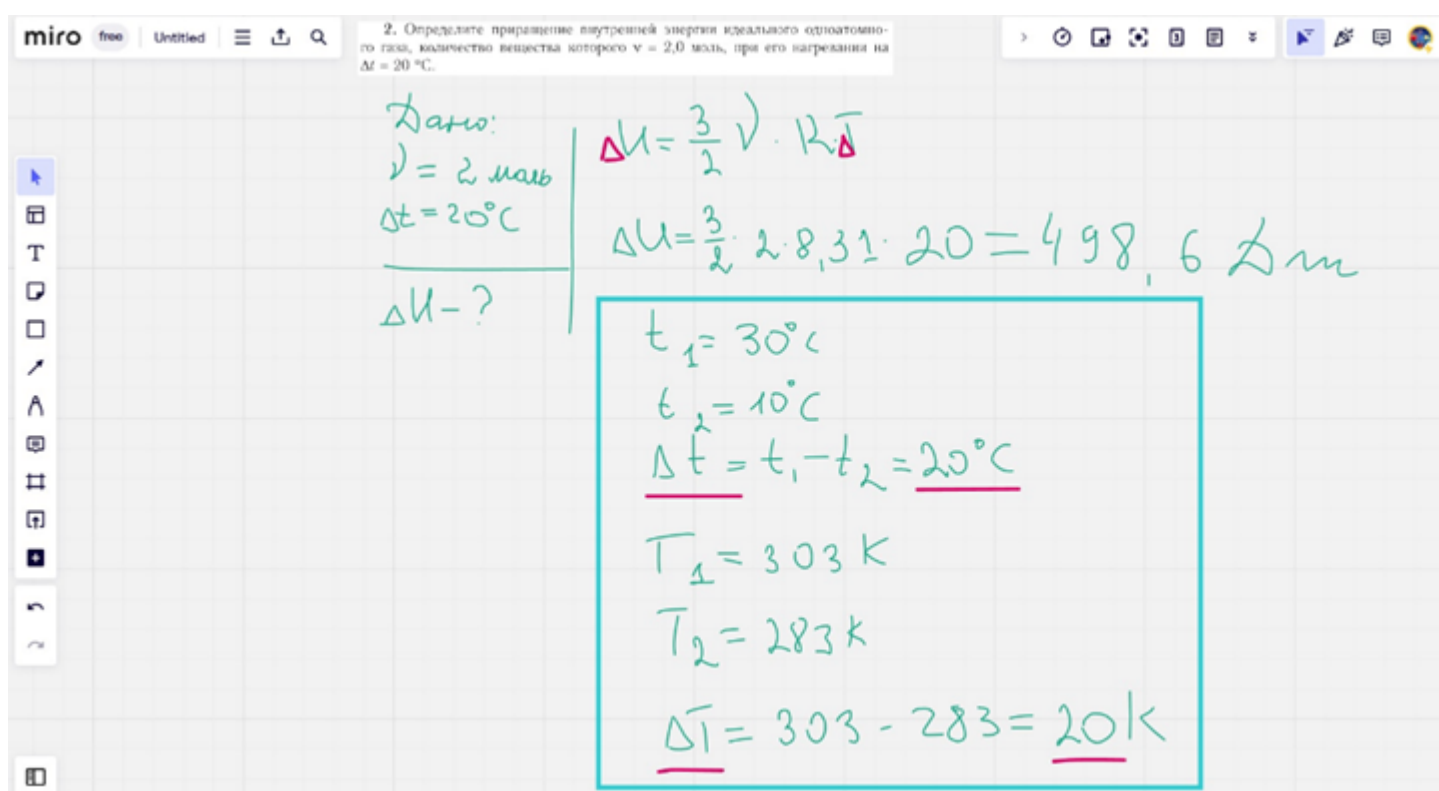 miro free Untitled
2. Определите приращение внутренней энергии идеального одноатомно-
го газа, количество вещества которого ν = 2,0 моль, при его нагревании на
Δt = 20 °C.
Дано:
ν = 2 моль
Δt = 20°C
ΔU - ?
ΔU = 3/2 ν · R · ΔT
ΔU = 3/2 · 2 · 8,31 · 20 = 498,6 Дж
t₁ = 30°C
t₂ = 10°C
Δt = t₁ - t₂ = 20°C
T₁ = 303 K
T₂ = 283 K
ΔT = 303 - 283 = 20 K